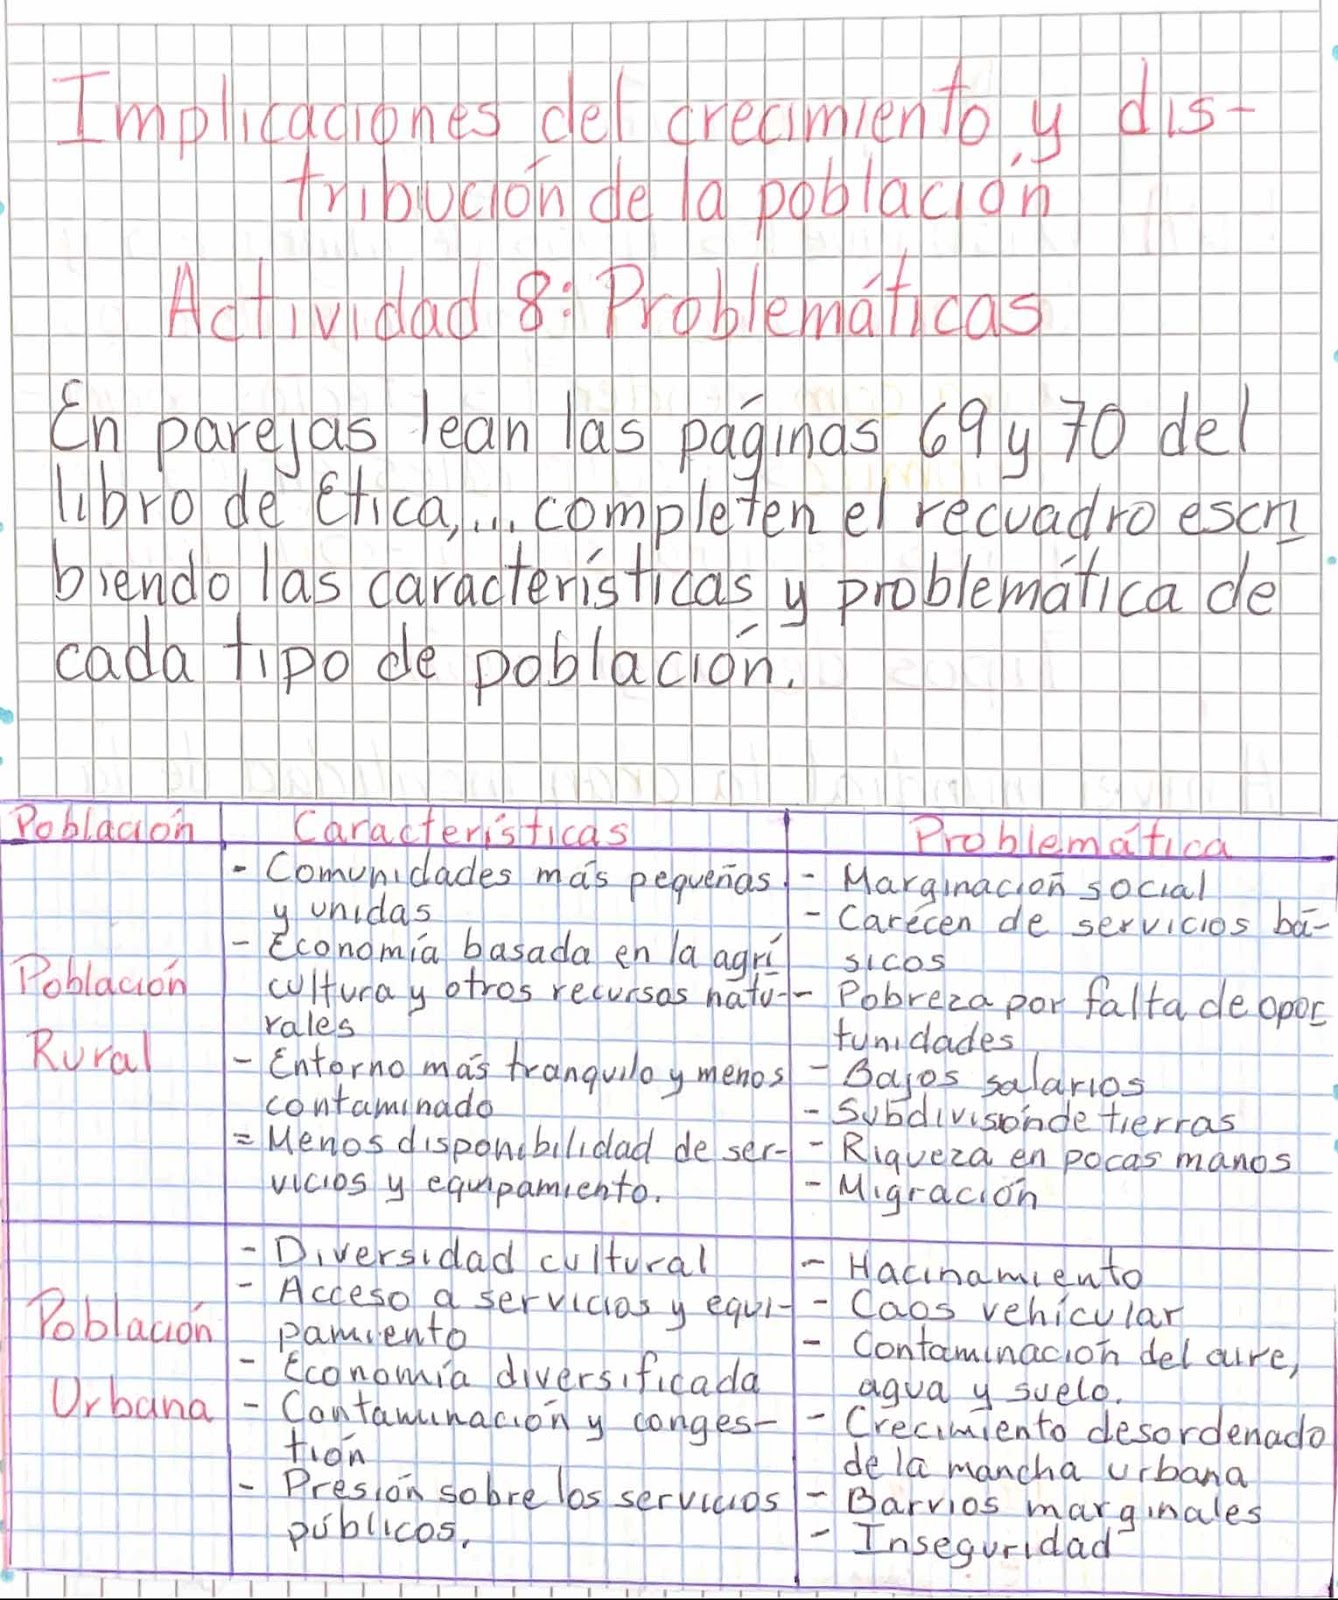 Implicaciones del crecimiento y dis-
tribución de la población
Actividad 8: Problemáticas
En parejas lean las páginas 69 y 70 del
libro de Etica,... completen el recuadro escri
biendo las características y problemática de
cada tipo de población.
Población
Características
Problemática
Población
Rural
- Comunidades más pequeñas
y unidas
- Economía basada en la agri
cultura y otros recursos natu-
rales
- Entorno más tranquilo y menos
contaminado
= Menos disponibilidad de ser-
vicios y equipamiento.
- Marginación social
- Carecen de servicios bá-
sicos
- Pobreza por falta de opor
tunidades
- Bajos salarios
- Subdivisión de tierras
- Riqueza en pocas manos
- Migración
Población
Urbana
- Diversidad cultural
- Acceso a servicios y equi-
pamiento
- Economía diversificada
- Contaminación y conges-
tión
- Presión sobre los servicios
públicos.
- Hacinamiento
- Caos vehícular
- Contaminación del aire,
agua y suelo.
- Crecimiento desordenado
de la mancha urbana
- Barrios marginales
- Inseguridad